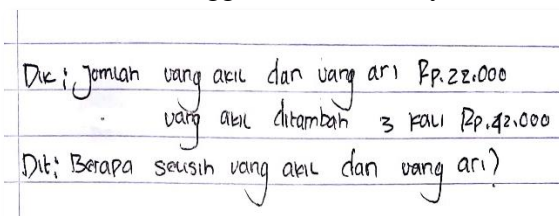 Dik : Jomlah uang akil dan uang ari Rp.22.000
uang akil ditambah 3 kali Rp.42.000
Dit : Berapa selisih uang akil dan uang ari?